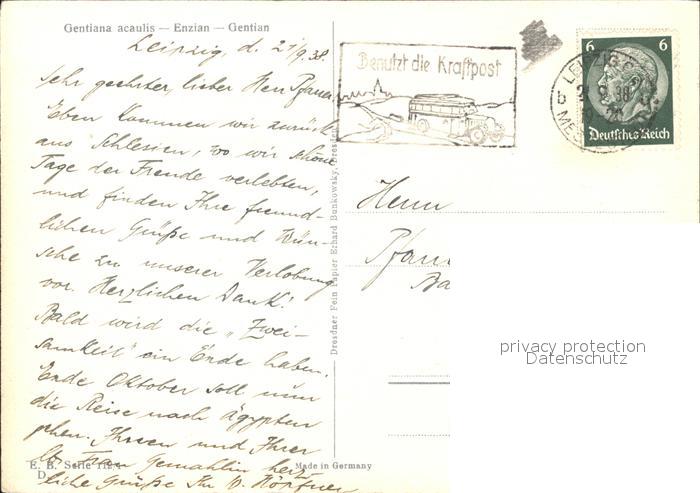 Gentiana acaulis — Enzian — Gentian
Leipzig, d. 21/9.38.
Sehr geehrter, lieber Herr Pfarrer
Eben kommen wir zurück
aus Schlesien, wo wir schöne
Tage der Freude verlebten,
und finden Ihre freund-
lichen Grüße und Wün-
sche zu unserer Verlobung
vor. Herzlichen Dank!
Bald wird die „Zwei-
samkeit" ein Ende haben.
Ende Oktober soll nun
die Reise nach Ägypten
gehen. Ihnen und Ihrer
lb. Frau Gemahlin herz-
liche Grüße Ihr
E. B. Serie
D.
Made in Germany
Dresdner Fein Papier Erhard Bunkowsky, Dresden
Benutzt die Kraftpost
LEIPZIG
b
38
MES
6 6
Deutsches Reich
Herrn
privacy protection
Datenschutz